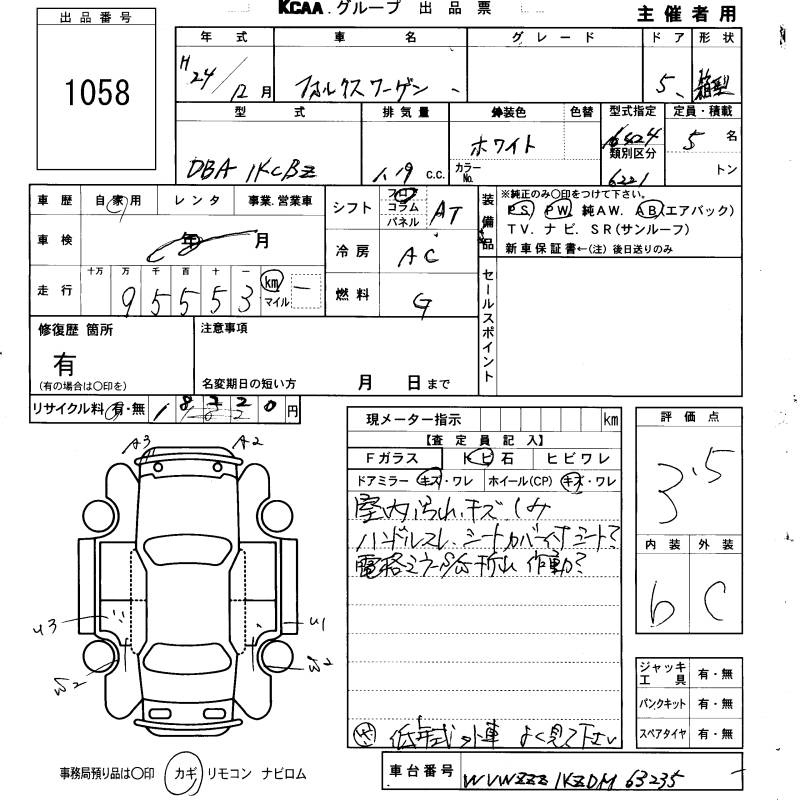 KCAA.グループ 出品票
主催者用
出品番号
1058
年式 車名 グレード ドア 形状
H24/12月 フォルクスワーゲン 5 箱型
型式 排気量 外装色 色替 型式指定 定員・積載
DBA 1KCBZ 1.19 c.c. ホワイト カラーNo. 16424 5名
類別区分
6221 トン
車歴 自家用 レンタ 事業.営業車
シフト フロア コラム パネル AT
装備品 ※純正のみ○印をつけて下さい。
PS PW 純AW. AB(エアバック)
TV. ナビ. SR(サンルーフ)
新車保証書←(注)後日送りのみ
車検 年 月
冷房 AC
走行 十万 万 千 百 十 一
95553 km マイル
燃料 G
セールスポイント
修復歴 箇所
有
(有の場合は○印を)
注意事項
名変期日の短い方 月 日まで
リサイクル料 有・無 18220円
現メーター指示 km
【査定員記入】
Fガラス トビ石 ヒビワレ
ドアミラー キズ・ワレ ホイール(CP) キズ・ワレ
室内汚れ.キズ.シミ
ハンドルスレ、シートカバー付シート?
電格ミラー 折れ 作動?
低年式外車 よく見て下さい
評価点
3.5
内装 外装
b C
ジャッキ工具 有・無
パンクキット 有・無
スペアタイヤ 有・無
A3 A2
U3 U1
W2 W2
事務局預り品は○印 カギ リモコン ナビロム
車台番号 WVWZZZ1KZDM63235